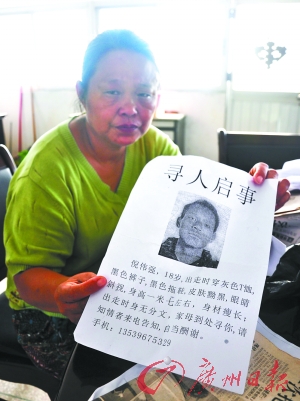 寻人启事
倪伟强，18岁，出走时穿灰色T恤，
黑色裤子，黑色拖鞋，皮肤黝黑，眼睛
斜视，身高一米七左右，身材瘦长；
出走时身无分文，家母到处寻你，请
知情者来电告知，自当酬谢。
手机：13539675329
广州日报